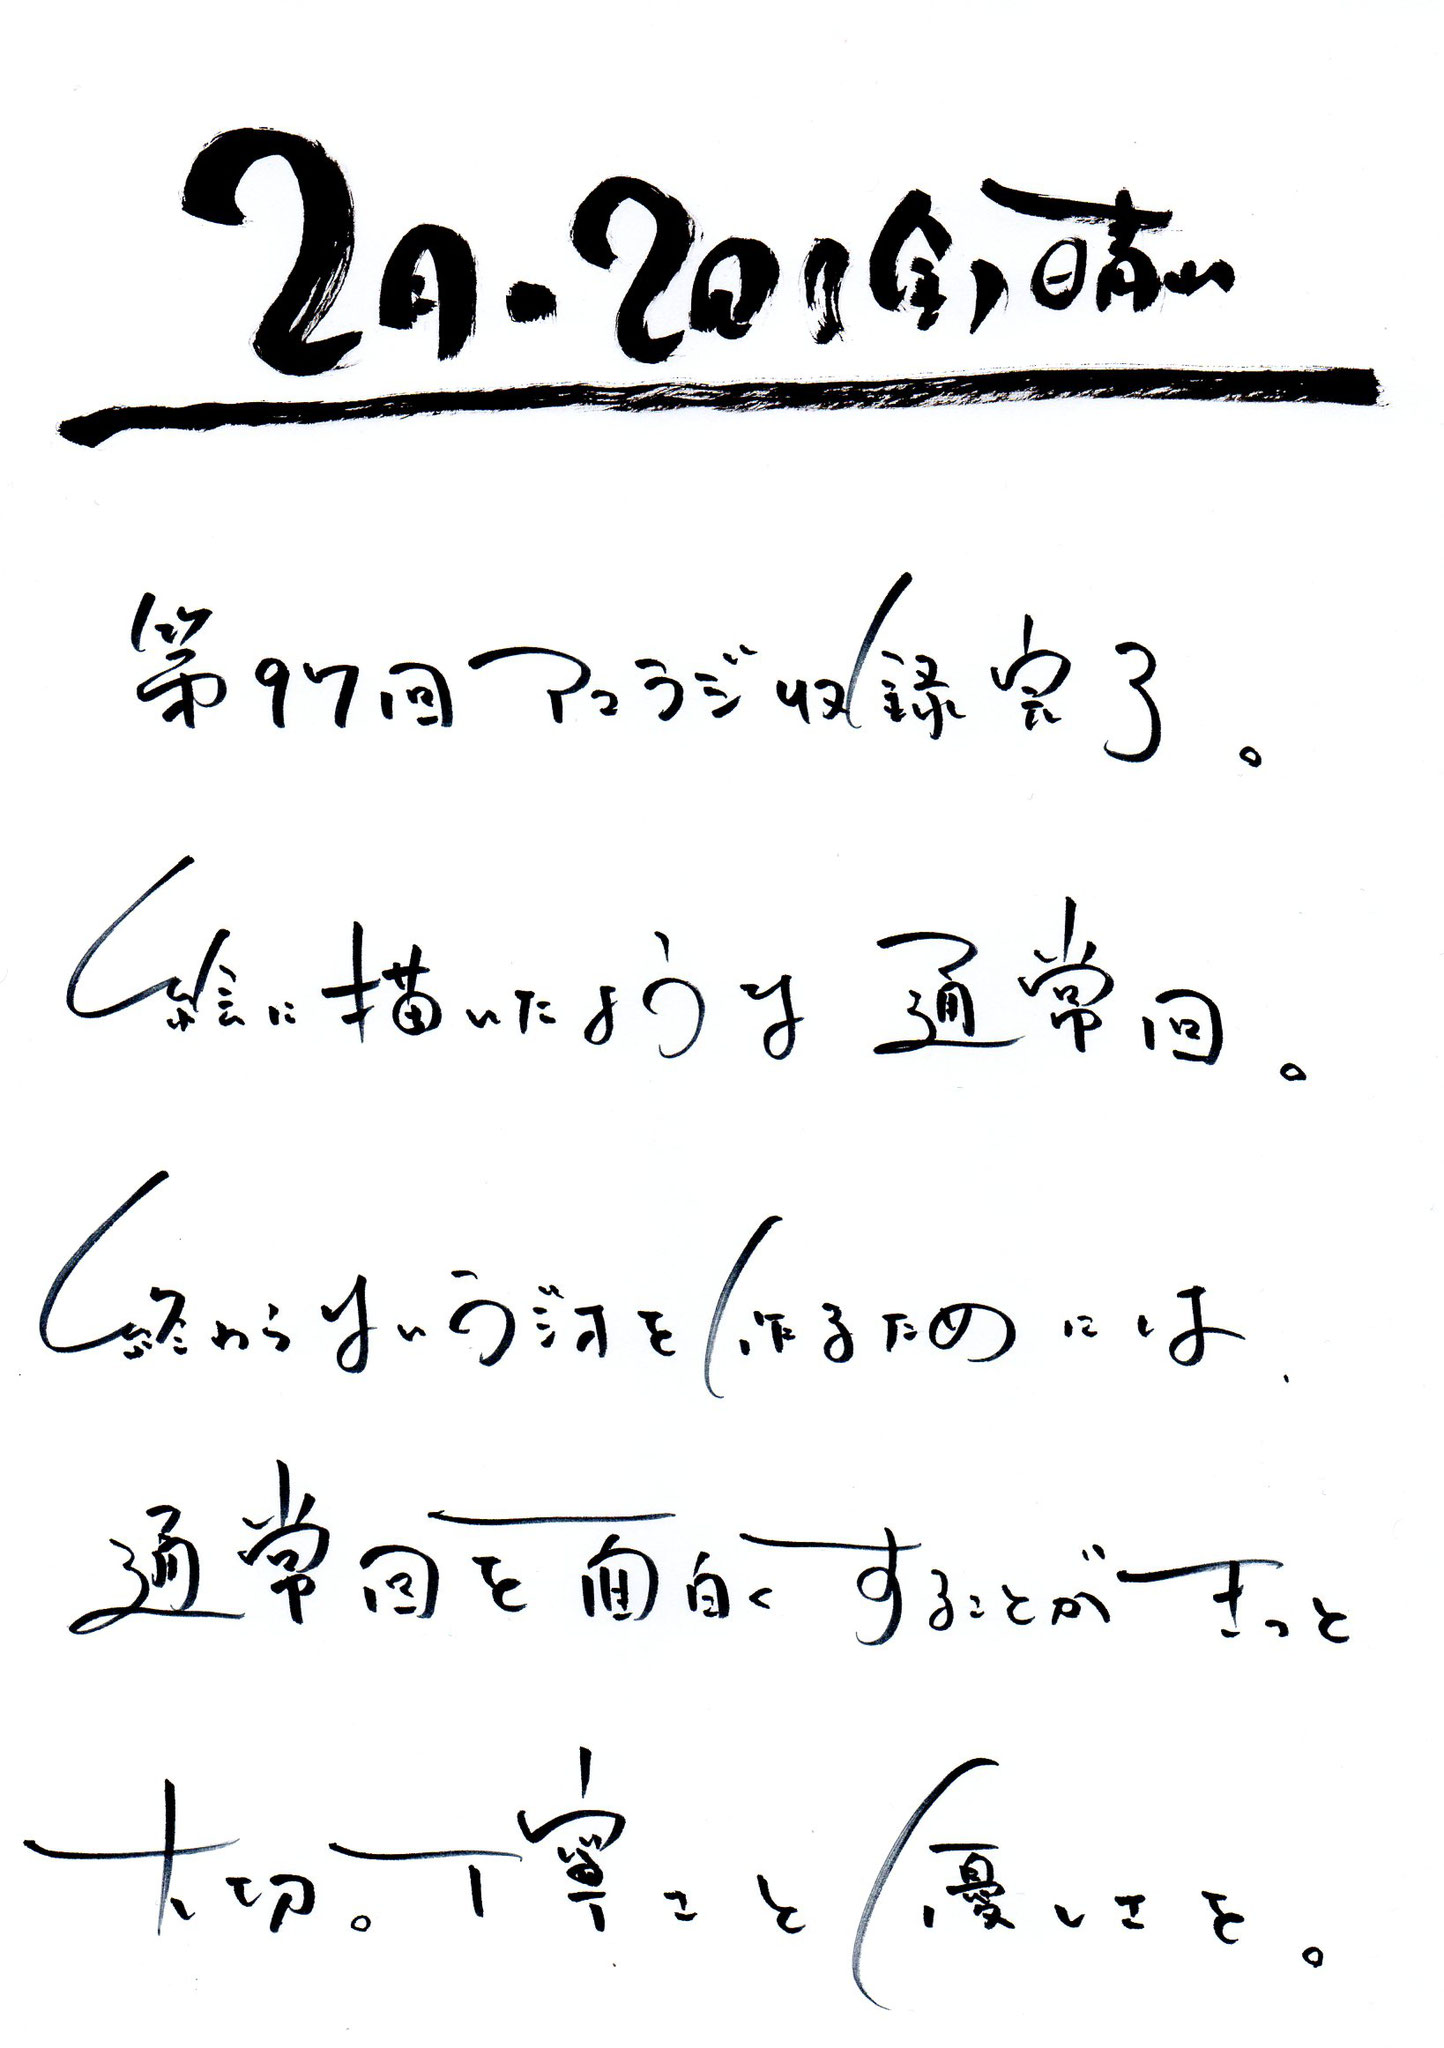 2月・2日(金)晴れ
第97回アコラジ収録完了。
絵に描いたような通常回。
終わらないラジオを作るためには、
通常回を面白くすることがきっと
大切。丁寧さと優しさを。